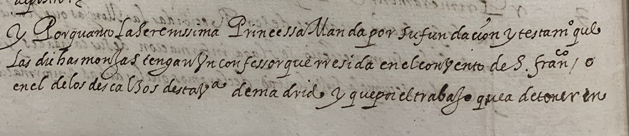 y Porquanto la serenissima Princessa Manda por su fundaçion y testamº que
las dichas monjas tengan Vn confessor que rresida en el conVento de S. franco / o
en el de los descalços desta vª de madrid y que por el trabajo que a de tener en